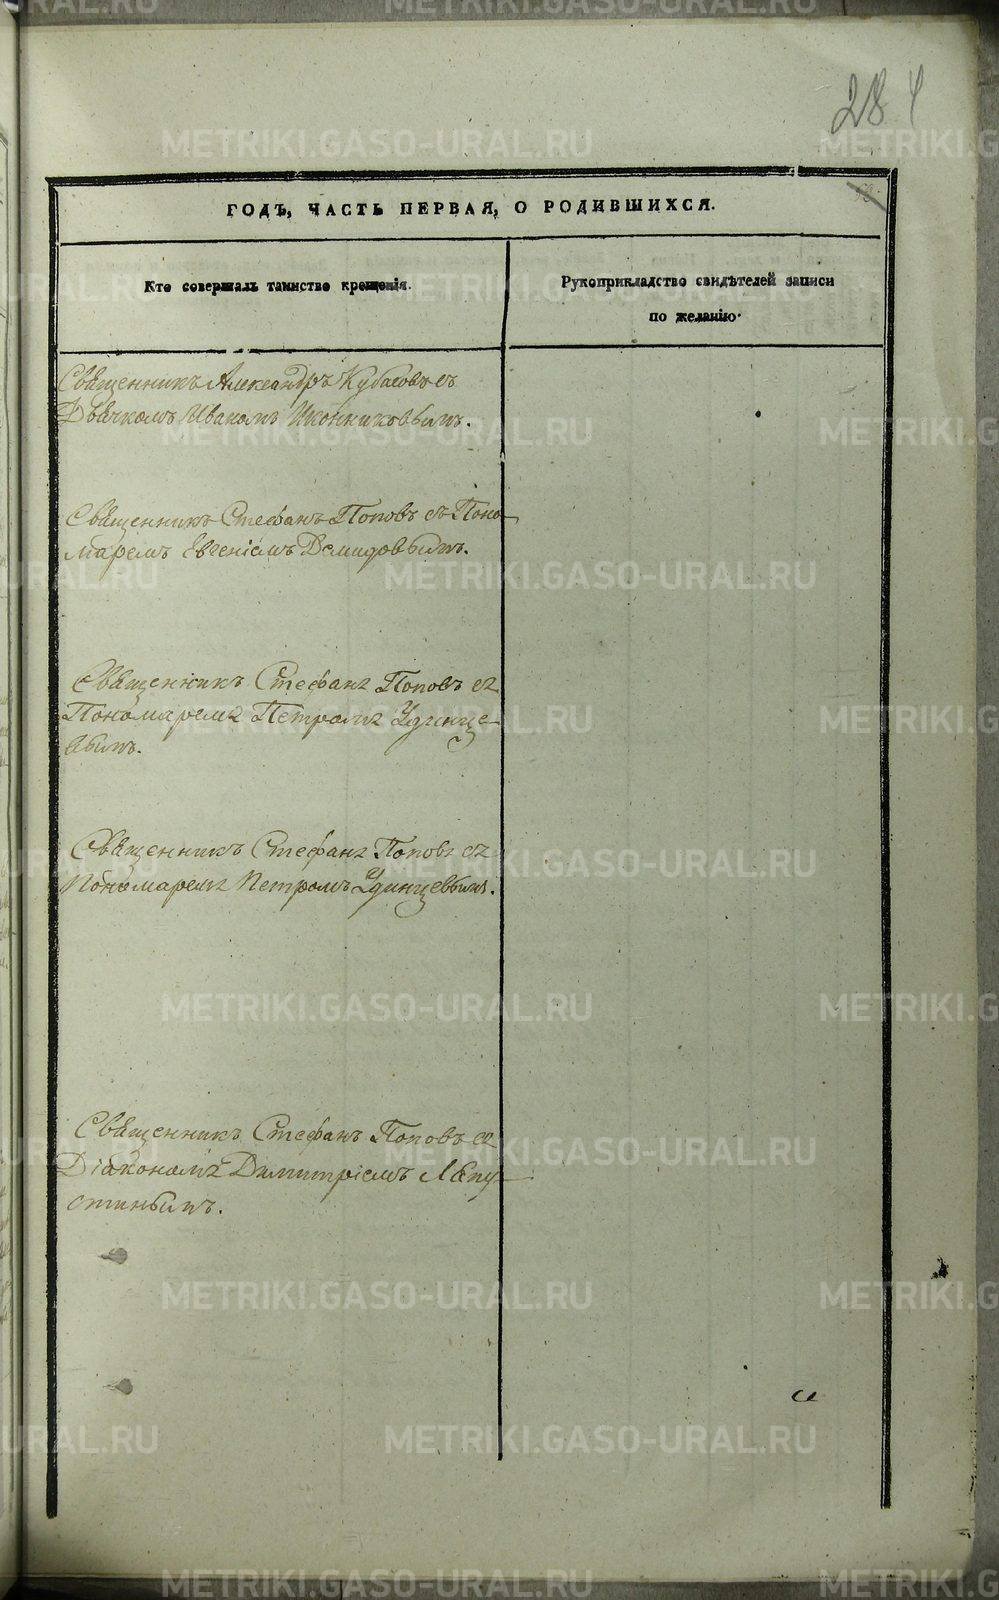 284
ГОДЪ, ЧАСТЬ ПЕРВАЯ, О РОДИВШИХСЯ.
Кто совершалъ таинство крещенія.
Рукоприкладство свидѣтелей записи
по желанію.
Священникъ Александръ Кубасовъ съ
Дьячкомъ Иваномъ Иконниковымъ.
Священникъ Стефанъ Поповъ съ Поно-
маремъ Евгеніемъ Демидовымъ.
Священникъ Стефанъ Поповъ съ
Пономаремъ Петромъ Удинце-
вымъ.
Священникъ Стефанъ Поповъ съ
Пономаремъ Петромъ Удинцевымъ.
Священникъ Стефанъ Поповъ съ
Діакономъ Димитріемъ Лапу-
стинымъ.
METRIKI.GASO-URAL.RU